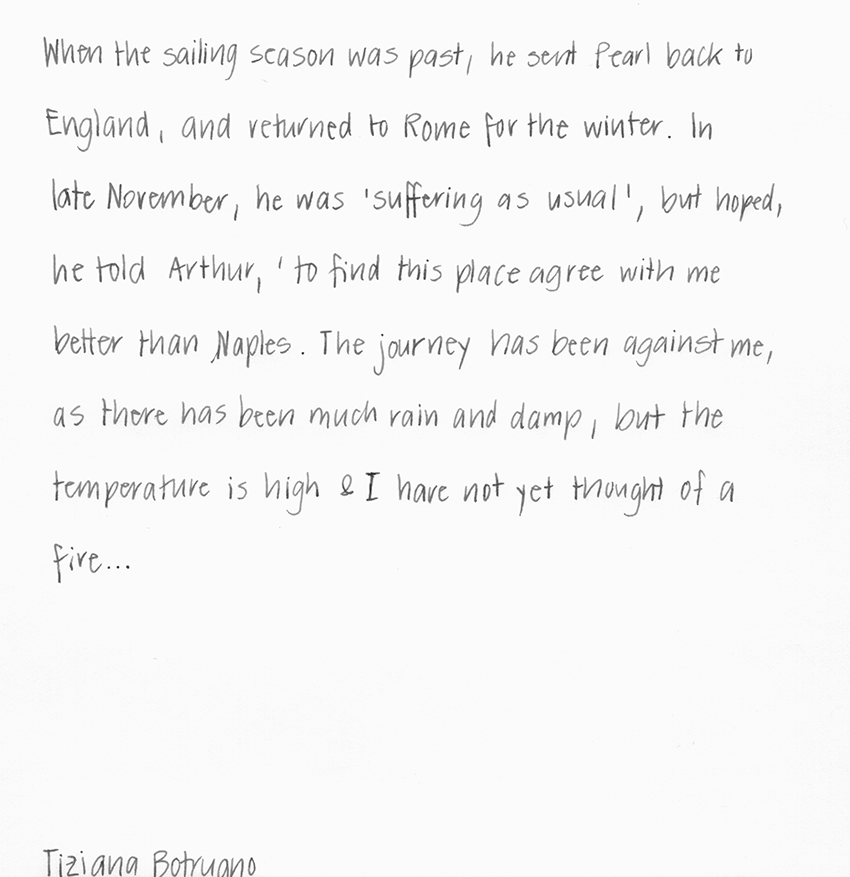 When the sailing season was past, he sent Pearl back to
England, and returned to Rome for the winter. In
late November, he was 'suffering as usual', but hoped,
he told Arthur, 'to find this place agree with me
better than Naples. The journey has been against me,
as there has been much rain and damp, but the
temperature is high & I have not yet thought of a
fire...
Tiziana Botrugno